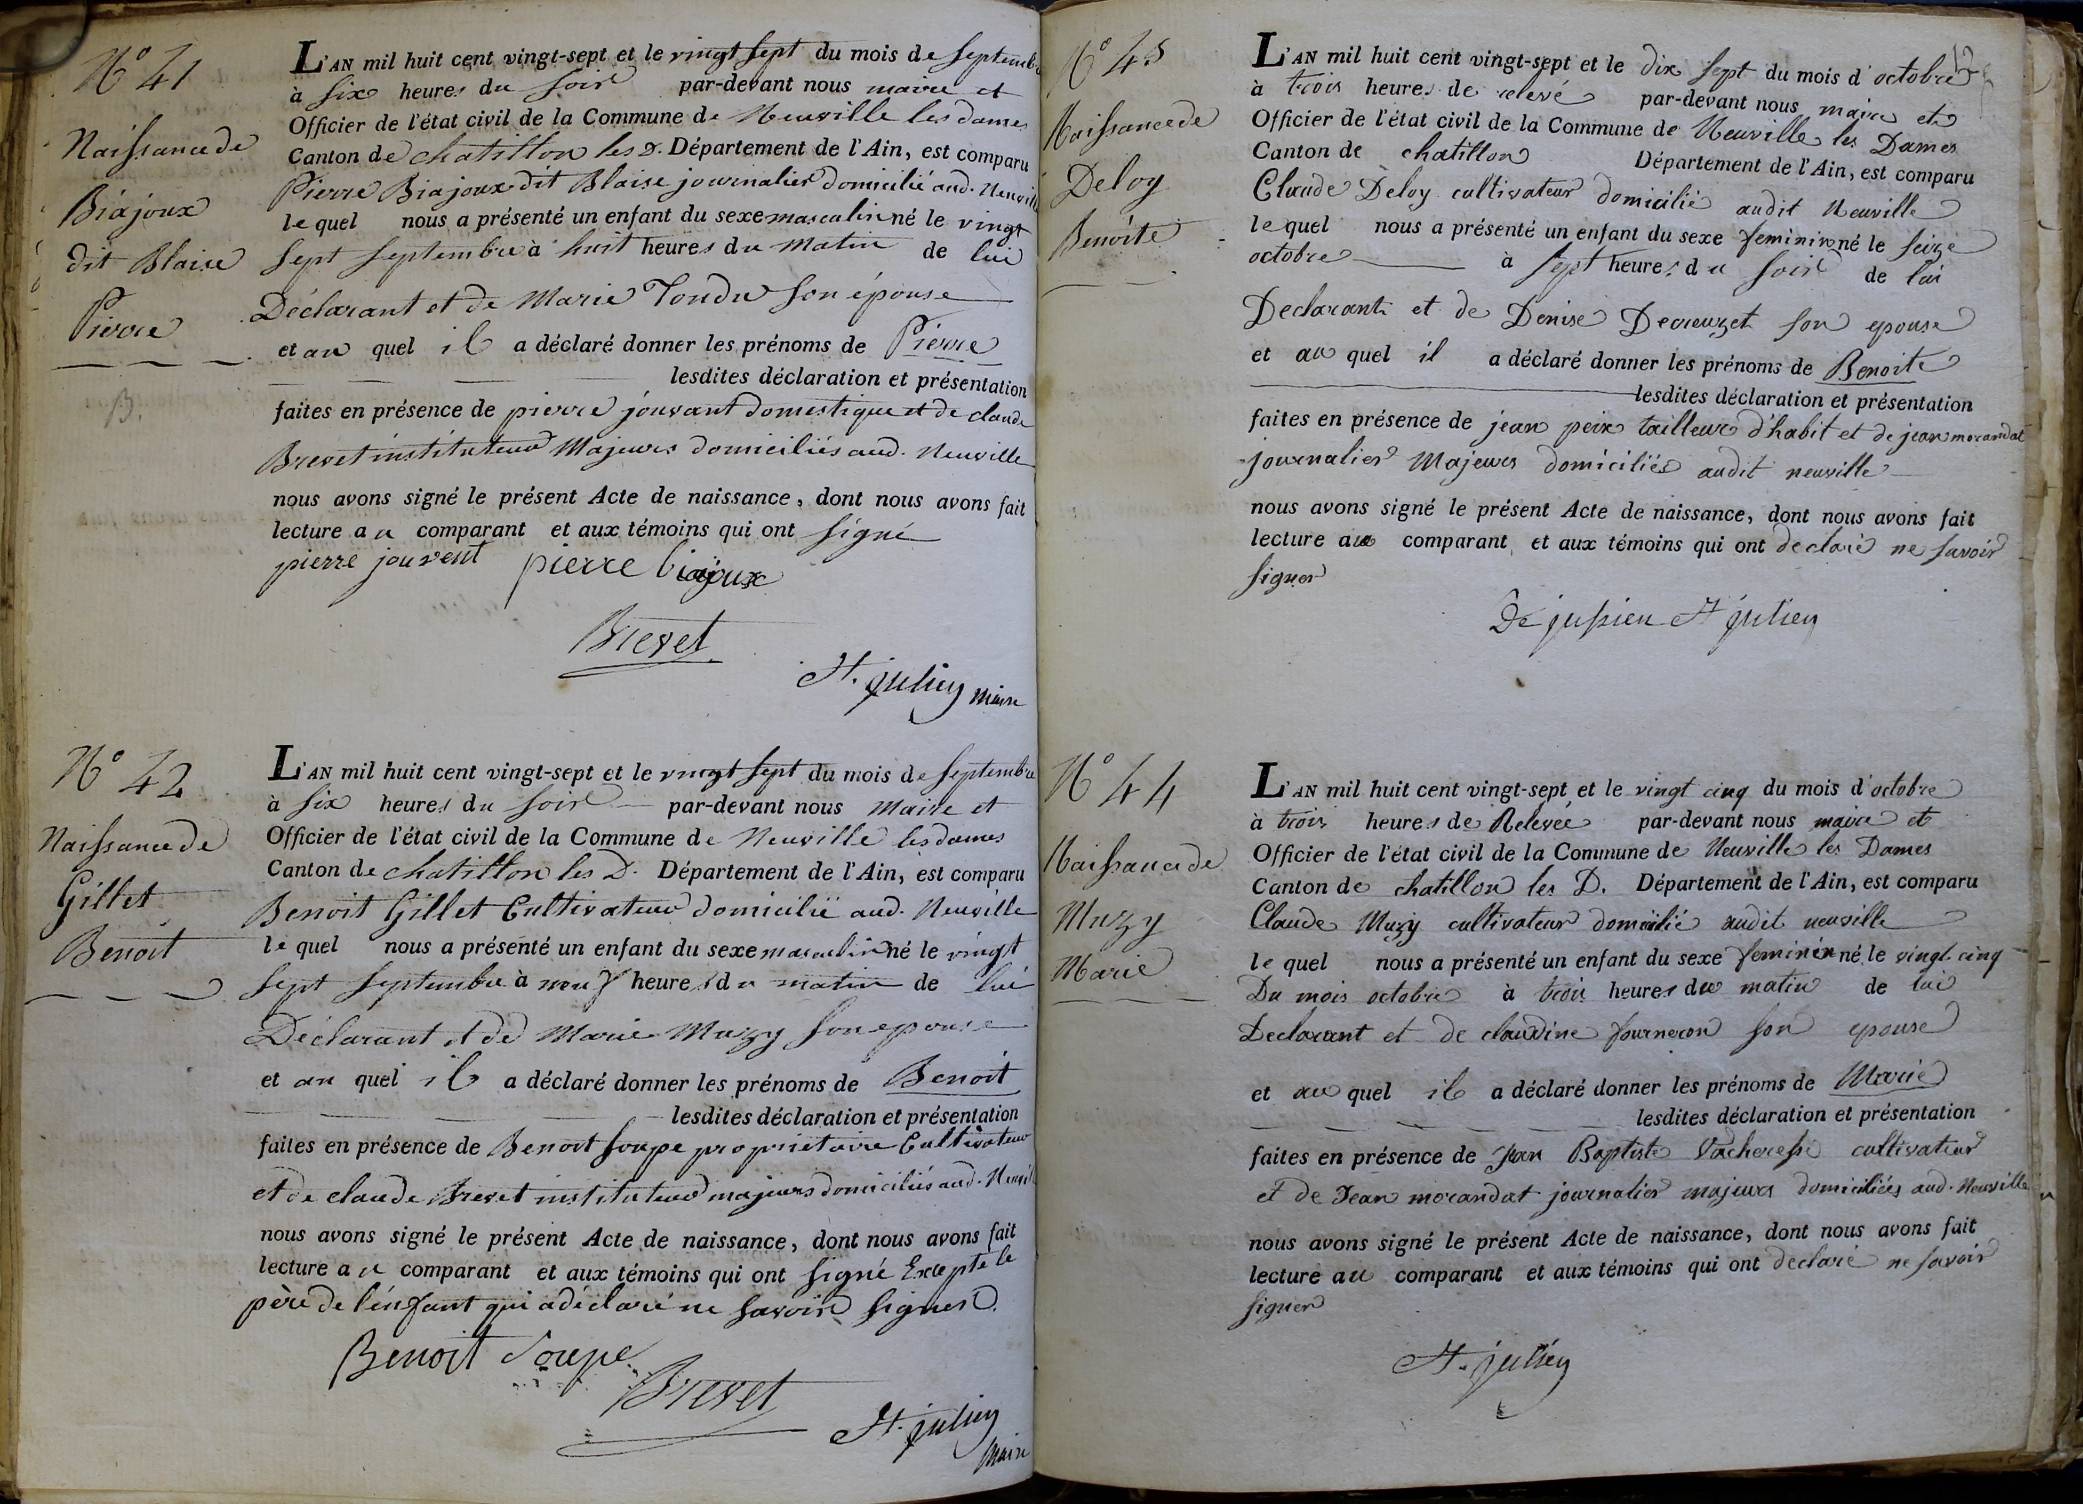 N° 41
Naissance de
Biajoux
dit Blaise
Pierre
B.
L'AN mil huit cent vingt-sept et le vingt sept du mois de Septembre
à Six heures du Soir par-devant nous maire et
Officier de l'état civil de la Commune de Neuville les dames
Canton de chatillon les D. Département de l'Ain, est comparu
Pierre Biajoux dit Blaise journalier domicilié aud. Neuville
lequel nous a présenté un enfant du sexe masculin né le vingt
Sept Septembre à huit heures du Matin de lui
Déclarant et de Marie Tondu Son épouse
et au quel il a déclaré donner les prénoms de Pierre
lesdites déclaration et présentation
faites en présence de pierre jouvant domestique et de claude
Brevet instituteur Majeurs domiciliés aud. Neuville
nous avons signé le présent Acte de naissance, dont nous avons fait
lecture au comparant et aux témoins qui ont Signé
pierre jouvent pierre biajoux
Brevet
St. julien maire
N° 42
Naissance de
Gillet
Benoit
L'AN mil huit cent vingt-sept et le vingt sept du mois de Septembre
à Six heures du Soir par-devant nous Maire et
Officier de l'état civil de la Commune de Neuville les dames
Canton de chatillon les D. Département de l'Ain, est comparu
Benoit Gillet Cultivateur domicilié aud. Neuville
lequel nous a présenté un enfant du sexe masculin né le vingt
Sept Septembre à neuf heures du matin de lui
Déclarant et de Marie Muzy Son epouse
et au quel il a déclaré donner les prénoms de Benoit
lesdites déclaration et présentation
faites en présence de Benoit Soupe propriétaire Cultivateur
et de claude Brevet instituteur majeurs domiciliés aud. Neuville
nous avons signé le présent Acte de naissance, dont nous avons fait
lecture au comparant et aux témoins qui ont Signé Excepté le
père de l'énfant qui a déclaré ne Savoir Signer.
Benoit Soupe
Brevet
St. julien
Maire
N° 43
Naissance de
Deloy
Benoite
L'AN mil huit cent vingt-sept et le dix Sept du mois d'octobre
à trois heures de relevé par-devant nous maire et
Officier de l'état civil de la Commune de Neuville les Dames
Canton de chatillon Département de l'Ain, est comparu
Claude Deloy cultivateur domicilié audit Neuville
lequel nous a présenté un enfant du sexe feminin né le Seize
octobre à Sept heures du Soir de lui
Declarant et de Denise Decreuzet Son epouse
et au quel il a déclaré donner les prénoms de Benoite
lesdites déclaration et présentation
faites en présence de jean peix tailleur d'habit et de jean morandat
journalier Majeurs domiciliés audit neuville
nous avons signé le présent Acte de naissance, dont nous avons fait
lecture au comparant et aux témoins qui ont declaré ne Savoir
Signer
De jussieu St julien
N° 44
Naissance de
Muzy
Marie
L'AN mil huit cent vingt-sept et le vingt cinq du mois d'octobre
à trois heures de Relevée par-devant nous maire et
Officier de l'état civil de la Commune de Neuville les Dames
Canton de chatillon les D. Département de l'Ain, est comparu
Claude Muzy cultivateur domicilié audit neuville
lequel nous a présenté un enfant du sexe feminin né le vingt cinq
Du mois octobre à trois heures du matin de lui
Declarant et de claudine fourneron Son epouse
et au quel il a déclaré donner les prénoms de Marie
lesdites déclaration et présentation
faites en présence de Jean Baptiste Vacheresse cultivateur
et de Jean morandat journalier majeurs domiciliés aud. Neuville
nous avons signé le présent Acte de naissance, dont nous avons fait
lecture au comparant et aux témoins qui ont declaré ne Savoir
Signer
St. julien